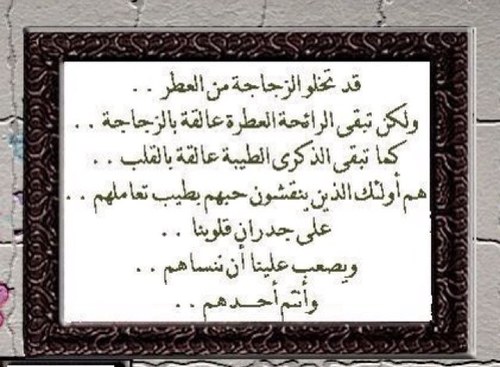 قد تخلو الزجاجة من العطر . .
ولكن تبقى الرائحة العطرة عالقة بالزجاجة . .
كما تبقى الذكرى الطيبة عالقة بالقلب . .
هم أولئك الذين ينقشون حبهم بطيب تعاملهم . .
على جدران قلوبنا . .
ويصعب علينا أن ننساهم . .
وأنتم أحــدهم . .